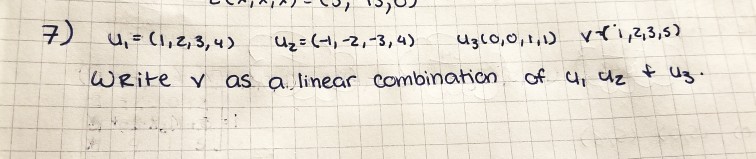 7) u₁=(1,2,3,4) u₂=(-1,-2,-3,4) u₃(0,0,1,1) v=(1,2,3,5)
WRite v as a linear combination of u₁ u₂ & u₃.